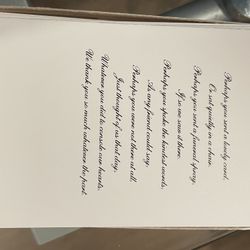 Perhaps you sent a lovely card,
Or sat quietly in a chair.
Perhaps you sent a funeral spray,
If so we saw it there.
Perhaps you spoke the kindest words,
As any friend could say;
Perhaps you were not there at all,
Just thought of us that day.
Whatever you did to console our hearts,
We thank you so much whatever the part.